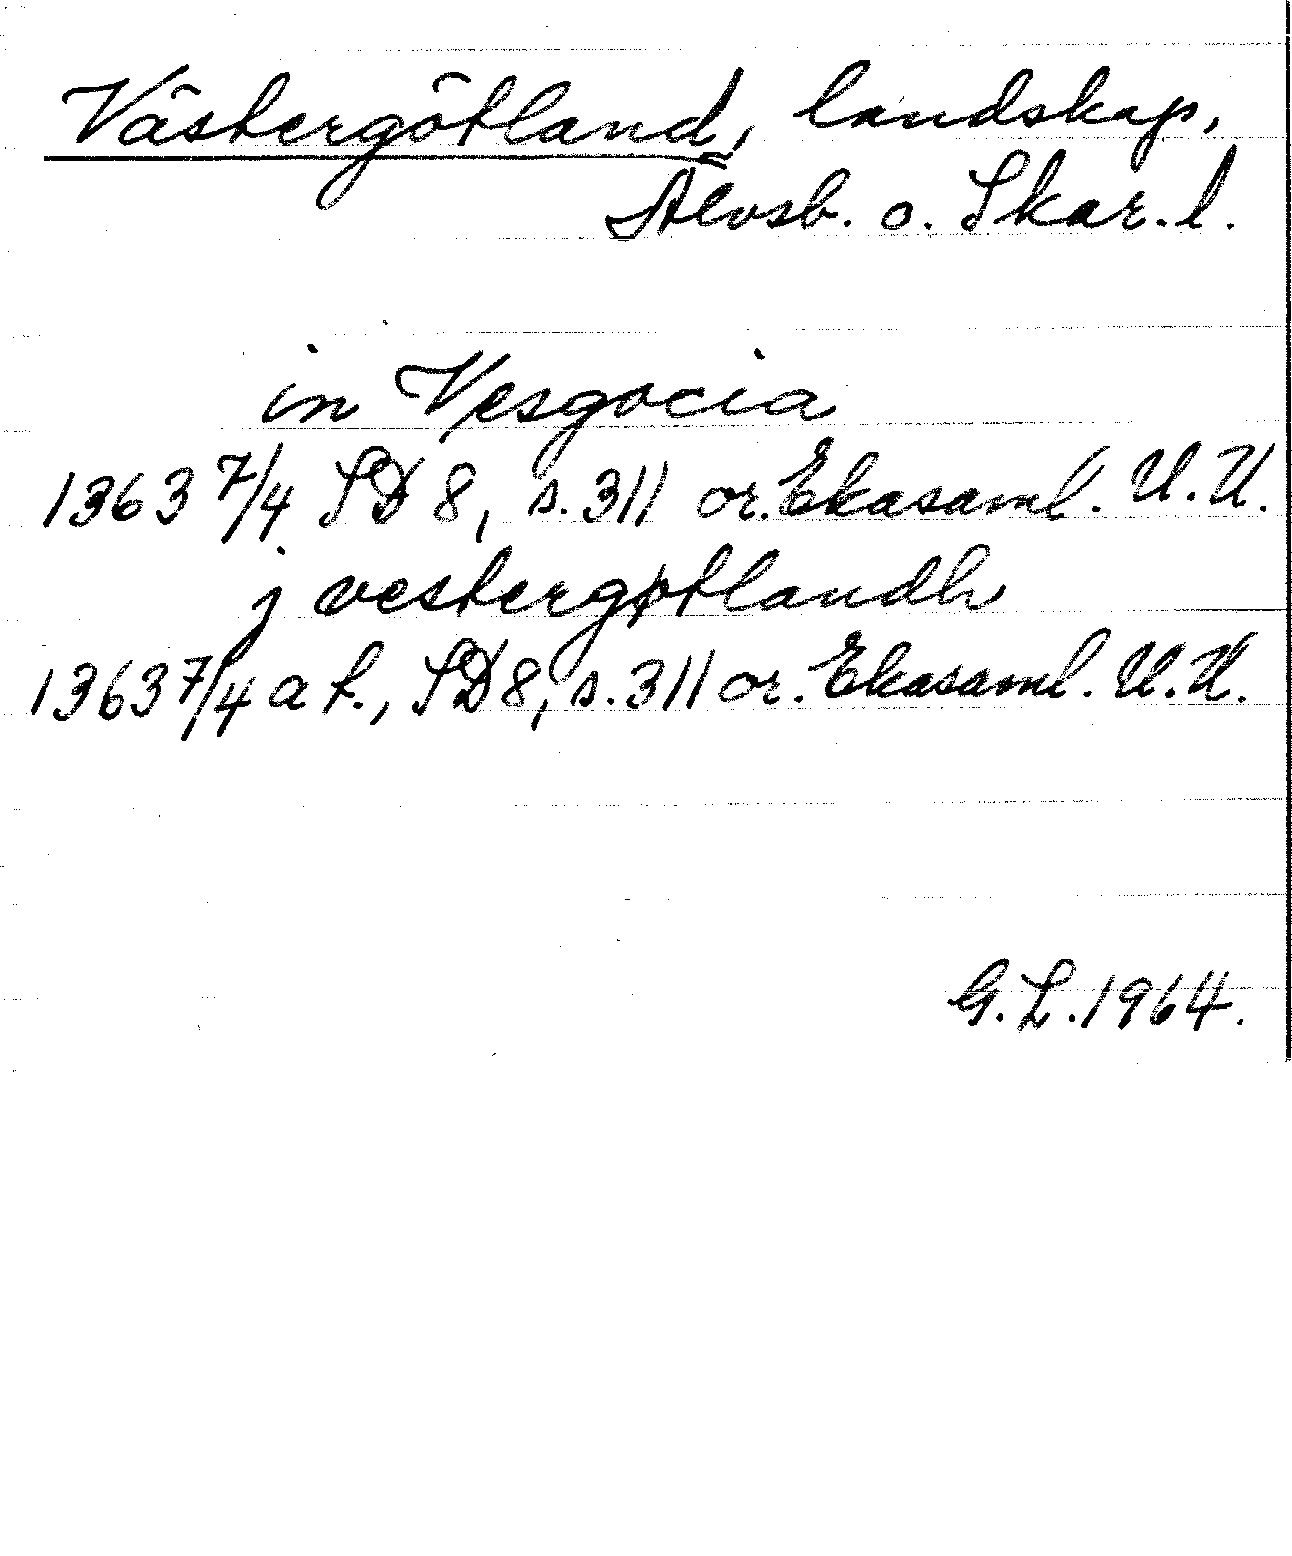 Västergötland, landskap,
Älvsb. o. Skar. l.
in Vesgocia
1363 7/4 SD 8, s. 311 or. Ekasaml. U.U.
j vestergøtlandh
1363 7/4 a t., SD 8, s. 311 or. Ekasaml. U.U.
G. L. 1964.